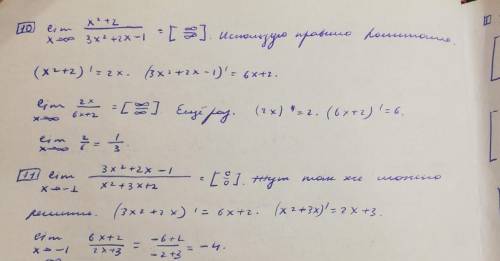 10 lim x→∞ (x²+2)/(3x²+2x-1) = [∞/∞]. Использую правило Лопиталя.
(x²+2)' = 2x. (3x²+2x-1)' = 6x+2.
lim x→∞ 2x/(6x+2) = [∞/∞]. Ещё раз. (2x)' = 2. (6x+2)' = 6.
lim x→∞ 2/6 = 1/3.
11 lim x→-1 (3x²+2x-1)/(x²+3x+2) = [0/0]. Тут так же можно
решить. (3x²+2x)' = 6x+2. (x²+3x)' = 2x+3.
lim x→-1 (6x+2)/(2x+3) = (-6+2)/(-2+3) = -4.